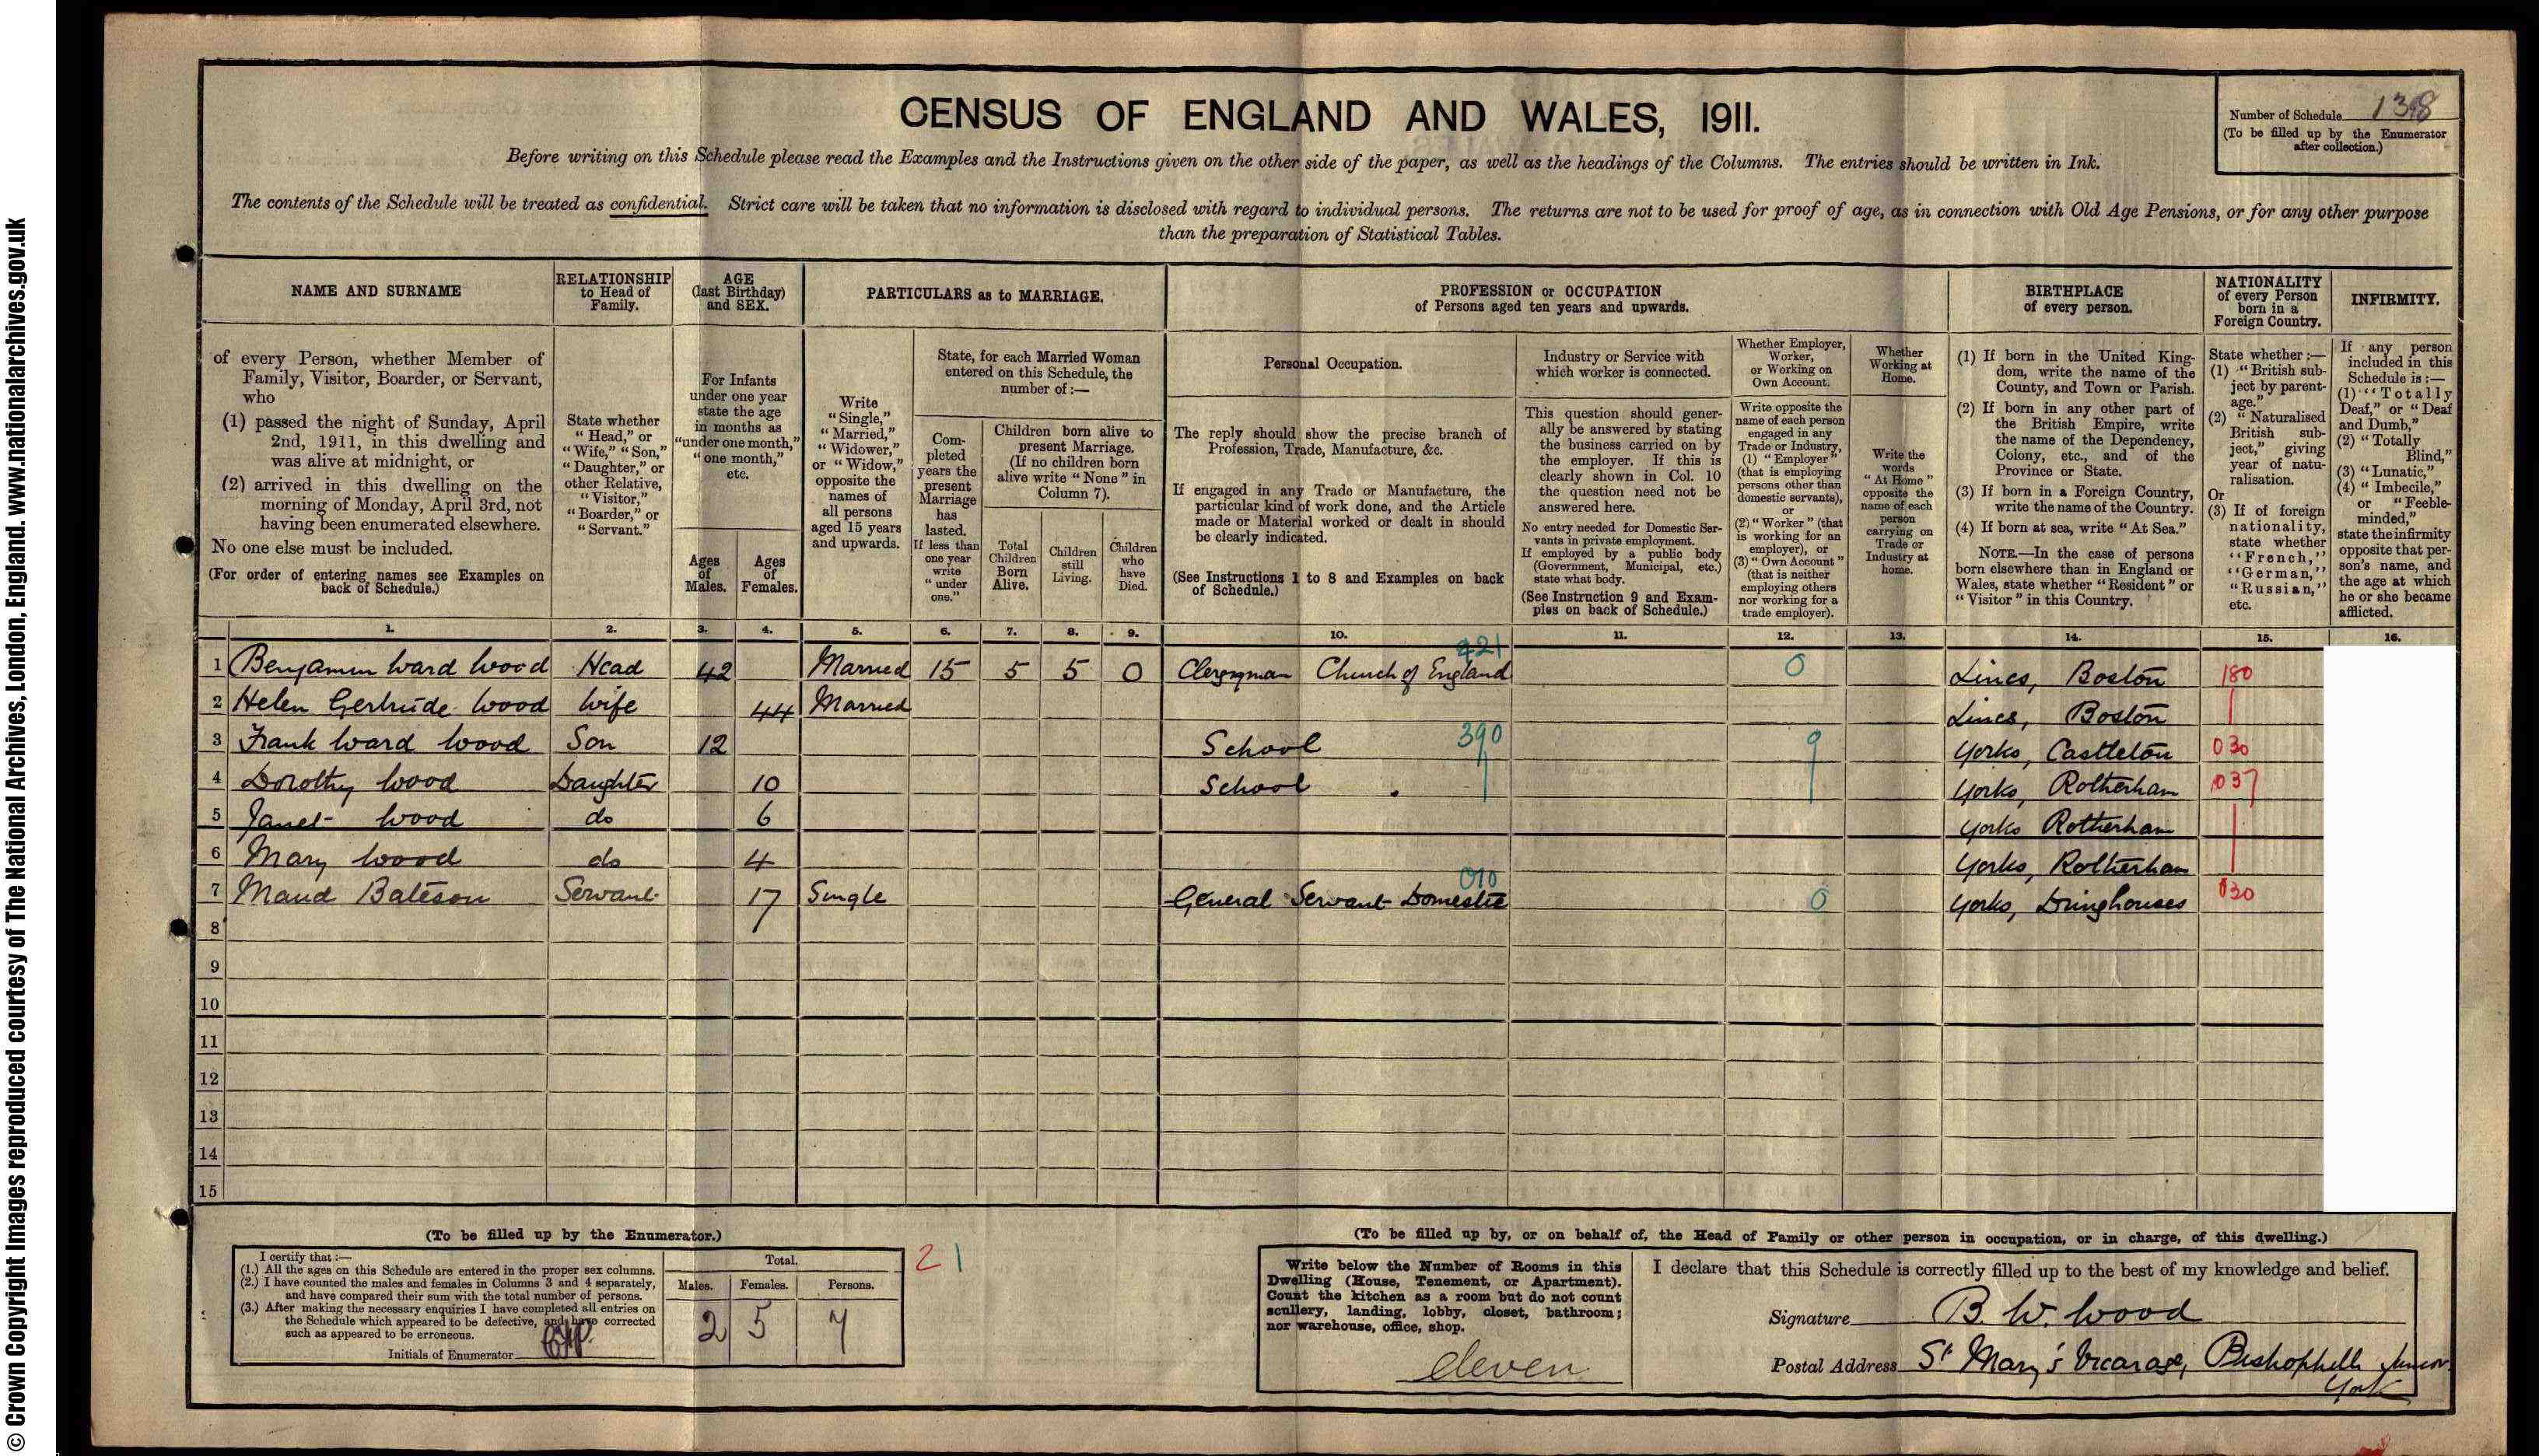 © Crown Copyright Images reproduced courtesy of The National Archives, London, England. www.nationalarchives.gov.uk
CENSUS OF ENGLAND AND WALES, 1911.
Number of Schedule 138
(To be filled up by the Enumerator
after collection.)
Before writing on this Schedule please read the Examples and the Instructions given on the other side of the paper, as well as the headings of the Columns. The entries should be written in Ink.
The contents of the Schedule will be treated as confidential. Strict care will be taken that no information is disclosed with regard to individual persons. The returns are not to be used for proof of age, as in connection with Old Age Pensions, or for any other purpose
than the preparation of Statistical Tables.
NAME AND SURNAME
of every Person, whether Member of
Family, Visitor, Boarder, or Servant,
who
(1) passed the night of Sunday, April
2nd, 1911, in this dwelling and
was alive at midnight, or
(2) arrived in this dwelling on the
morning of Monday, April 3rd, not
having been enumerated elsewhere.
No one else must be included.
(For order of entering names see Examples on
back of Schedule.)
RELATIONSHIP
to Head of
Family.
State whether
“Head,” or
“Wife,” “Son,”
“Daughter,” or
other Relative,
“Visitor,”
“Boarder,” or
“Servant.”
AGE
(last Birthday)
and SEX.
For Infants
under one year
state the age
in months as
“under one month,”
“one month,”
etc.
Ages
of
Males.
Ages
of
Females.
PARTICULARS as to MARRIAGE.
Write
“Single,”
“Married,”
“Widower,”
or “Widow,”
opposite the
names of
all persons
aged 15 years
and upwards.
State, for each Married Woman
entered on this Schedule, the
number of:—
Com-
pleted
years the
present
Marriage
has
lasted.
If less than
one year
write
“under
one.”
Children born alive to
present Marriage.
(If no children born
alive write “None” in
Column 7).
Total
Children
Born
Alive.
Children
still
Living.
Children
who
have
Died.
PROFESSION or OCCUPATION
of Persons aged ten years and upwards.
Personal Occupation.
The reply should show the precise branch of
Profession, Trade, Manufacture, &c.
If engaged in any Trade or Manufacture, the
particular kind of work done, and the Article
made or Material worked or dealt in should
be clearly indicated.
(See Instructions 1 to 8 and Examples on back
of Schedule.)
Industry or Service with
which worker is connected.
This question should gener-
ally be answered by stating
the business carried on by
the employer. If this is
clearly shown in Col. 10
the question need not be
answered here.
No entry needed for Domestic Ser-
vants in private employment.
If employed by a public body
(Government, Municipal, etc.)
state what body.
(See Instruction 9 and Exam-
ples on back of Schedule.)
Whether Employer,
Worker,
or Working on
Own Account.
Write opposite the
name of each person
engaged in any
Trade or Industry,
(1) “Employer”
(that is employing
persons other than
domestic servants),
or
(2) “Worker” (that
is working for an
employer), or
(3) “Own Account”
(that is neither
employing others
nor working for a
trade employer).
Whether
Working at
Home.
Write the
words
“At Home”
opposite the
name of each
person
carrying on
Trade or
Industry at
home.
BIRTHPLACE
of every person.
(1) If born in the United King-
dom, write the name of the
County, and Town or Parish.
(2) If born in any other part of
the British Empire, write
the name of the Dependency,
Colony, etc., and of the
Province or State.
(3) If born in a Foreign Country,
write the name of the Country.
(4) If born at sea, write “At Sea.”
NOTE.—In the case of persons
born elsewhere than in England or
Wales, state whether “Resident” or
“Visitor” in this Country.
NATIONALITY
of every Person
born in a
Foreign Country.
State whether:—
(1) “British sub-
ject by parent-
age.”
(2) “Naturalised
British sub-
ject,” giving
year of natu-
ralisation.
Or
(3) If of foreign
nationality,
state whether
“French,”
“German,”
“Russian,”
etc.
INFIRMITY.
If any person
included in this
Schedule is:—
(1) “Totally
Deaf,” or “Deaf
and Dumb,”
(2) “Totally
Blind,”
(3) “Lunatic,”
(4) “Imbecile,”
or “Feeble-
minded,”
state the infirmity
opposite that per-
son’s name, and
the age at which
he or she became
afflicted.
1. 2. 3. 4. 5. 6. 7. 8. 9. 10. 11. 12. 13. 14. 15. 16.
1 Benjamin Ward Wood Head 42 Married 15 5 5 0 Clergyman Church of England 421 0 Lincs, Boston 180
2 Helen Gertrude Wood Wife 44 Married Lincs, Boston
3 Frank Ward Wood Son 12 School 390 9 Yorks, Castleton 030
4 Dorothy Wood Daughter 10 School Yorks, Rotherham 037
5 Janet Wood do 6 Yorks Rotherham
6 Mary Wood do 4 Yorks, Rotherham
7 Maud Bateson Servant 17 Single General Servant Domestic 010 0 Yorks, Dringhouses 030
8
9
10
11
12
13
14
15
(To be filled up by the Enumerator.)
I certify that:—
(1.) All the ages on this Schedule are entered in the proper sex columns.
(2.) I have counted the males and females in Columns 3 and 4 separately,
and have compared their sum with the total number of persons.
(3.) After making the necessary enquiries I have completed all entries on
the Schedule which appeared to be defective, and have corrected
such as appeared to be erroneous.
Initials of Enumerator
Total.
Males. Females. Persons.
2 5 7
2 1
(To be filled up by, or on behalf of, the Head of Family or other person in occupation, or in charge, of this dwelling.)
Write below the Number of Rooms in this
Dwelling (House, Tenement, or Apartment).
Count the kitchen as a room but do not count
scullery, landing, lobby, closet, bathroom;
nor warehouse, office, shop.
eleven
I declare that this Schedule is correctly filled up to the best of my knowledge and belief.
Signature B. W. Wood
Postal Address St Mary's Vicarage, Bishophill Junior
York